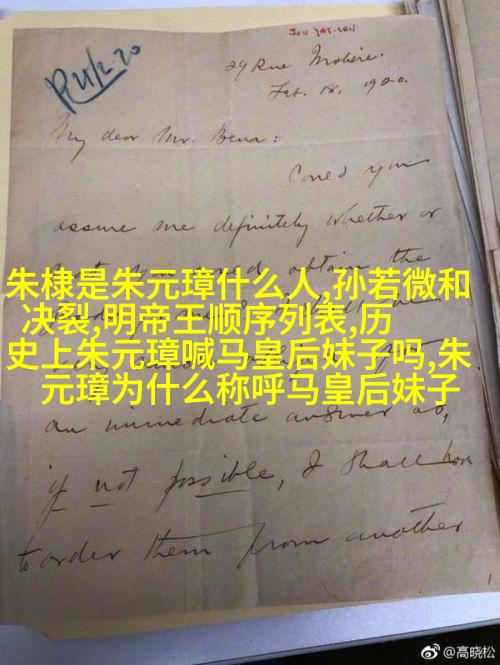 SUN YAT-SEN
R 21/2.20
29 Rue Molière.
Feb. 18, 1920.
My dear Mr. Bena:
Could you
assure me definitely whether or
obtain the
朱棣是朱元璋什么人,孙若微和
决裂,明帝王顺序列表,历
史上朱元璋喊马皇后妹子吗,朱
元璋为什么称呼马皇后妹子
an immediate answer as,
if not possible, I shall have
to order them from another
@高晓松